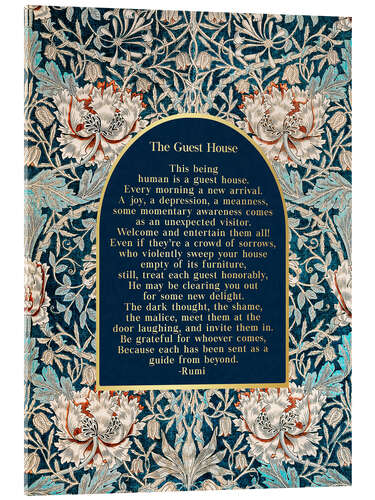 The Guest House
This being
human is a guest house.
Every morning a new arrival.
A joy, a depression, a meanness,
some momentary awareness comes
as an unexpected visitor.
Welcome and entertain them all!
Even if they're a crowd of sorrows,
who violently sweep your house
empty of its furniture,
still, treat each guest honorably,
He may be clearing you out
for some new delight.
The dark thought, the shame,
the malice, meet them at the
door laughing, and invite them in.
Be grateful for whoever comes,
Because each has been sent as a
guide from beyond.
-Rumi